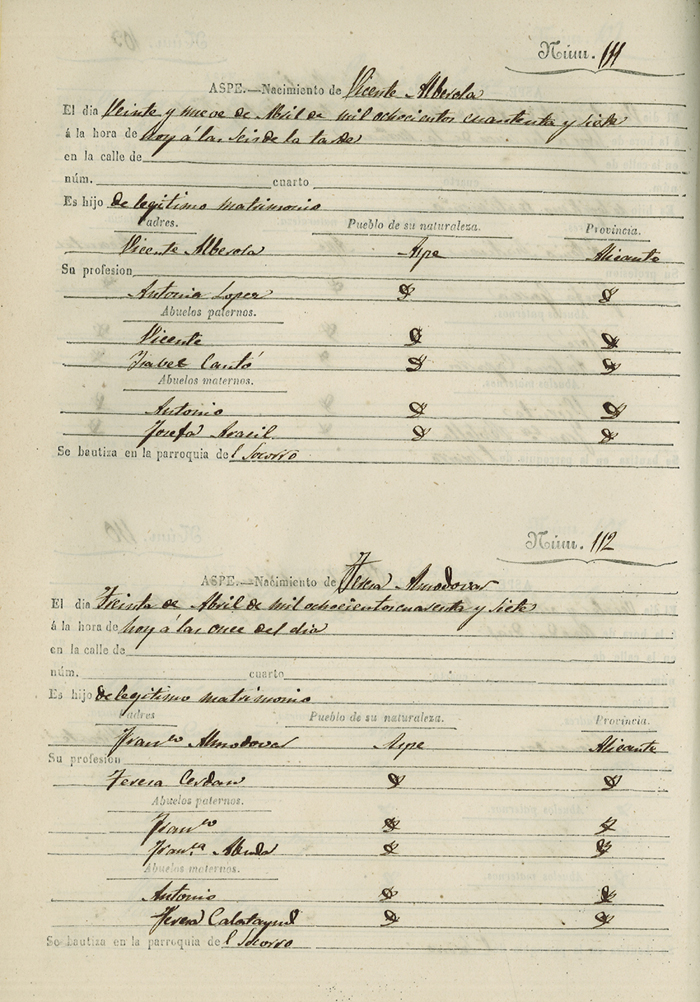 Núm. 111
ASPE.—Nacimiento de Vicente Alberola
El dia Veinte y nueve de Abril de mil ochocientos cuarenta y siete
á la hora de hoy á las seis de la tarde
en la calle de
núm. cuarto
Es hijo de legitimo matrimonio
Padres. Pueblo de su naturaleza. Provincia.
Vicente Alberola Aspe Alicante
Su profesion
Antonia Lopez
Abuelos paternos.
Vicente
Isabel Cantó
Abuelos maternos.
Antonio
Josefa
Se bautiza en la parroquia de l Socorro
Núm. 112
ASPE.—Nacimiento de Teresa Almodovar
El dia Treinta de Abril de mil ochocientos cuarenta y siete
á la hora de hoy á las once del dia
en la calle de
núm. cuarto
Es hijo de legitimo matrimonio
Padres Pueblo de su naturaleza. Provincia.
Fran.co Almodovar Aspe Alicante
Su profesion
Teresa Cerdan
Abuelos paternos.
Fran.co
Fran.ca
Abuelos maternos.
Antonio
Teresa Calatayud
Se bautiza en la parroquia de l Socorro